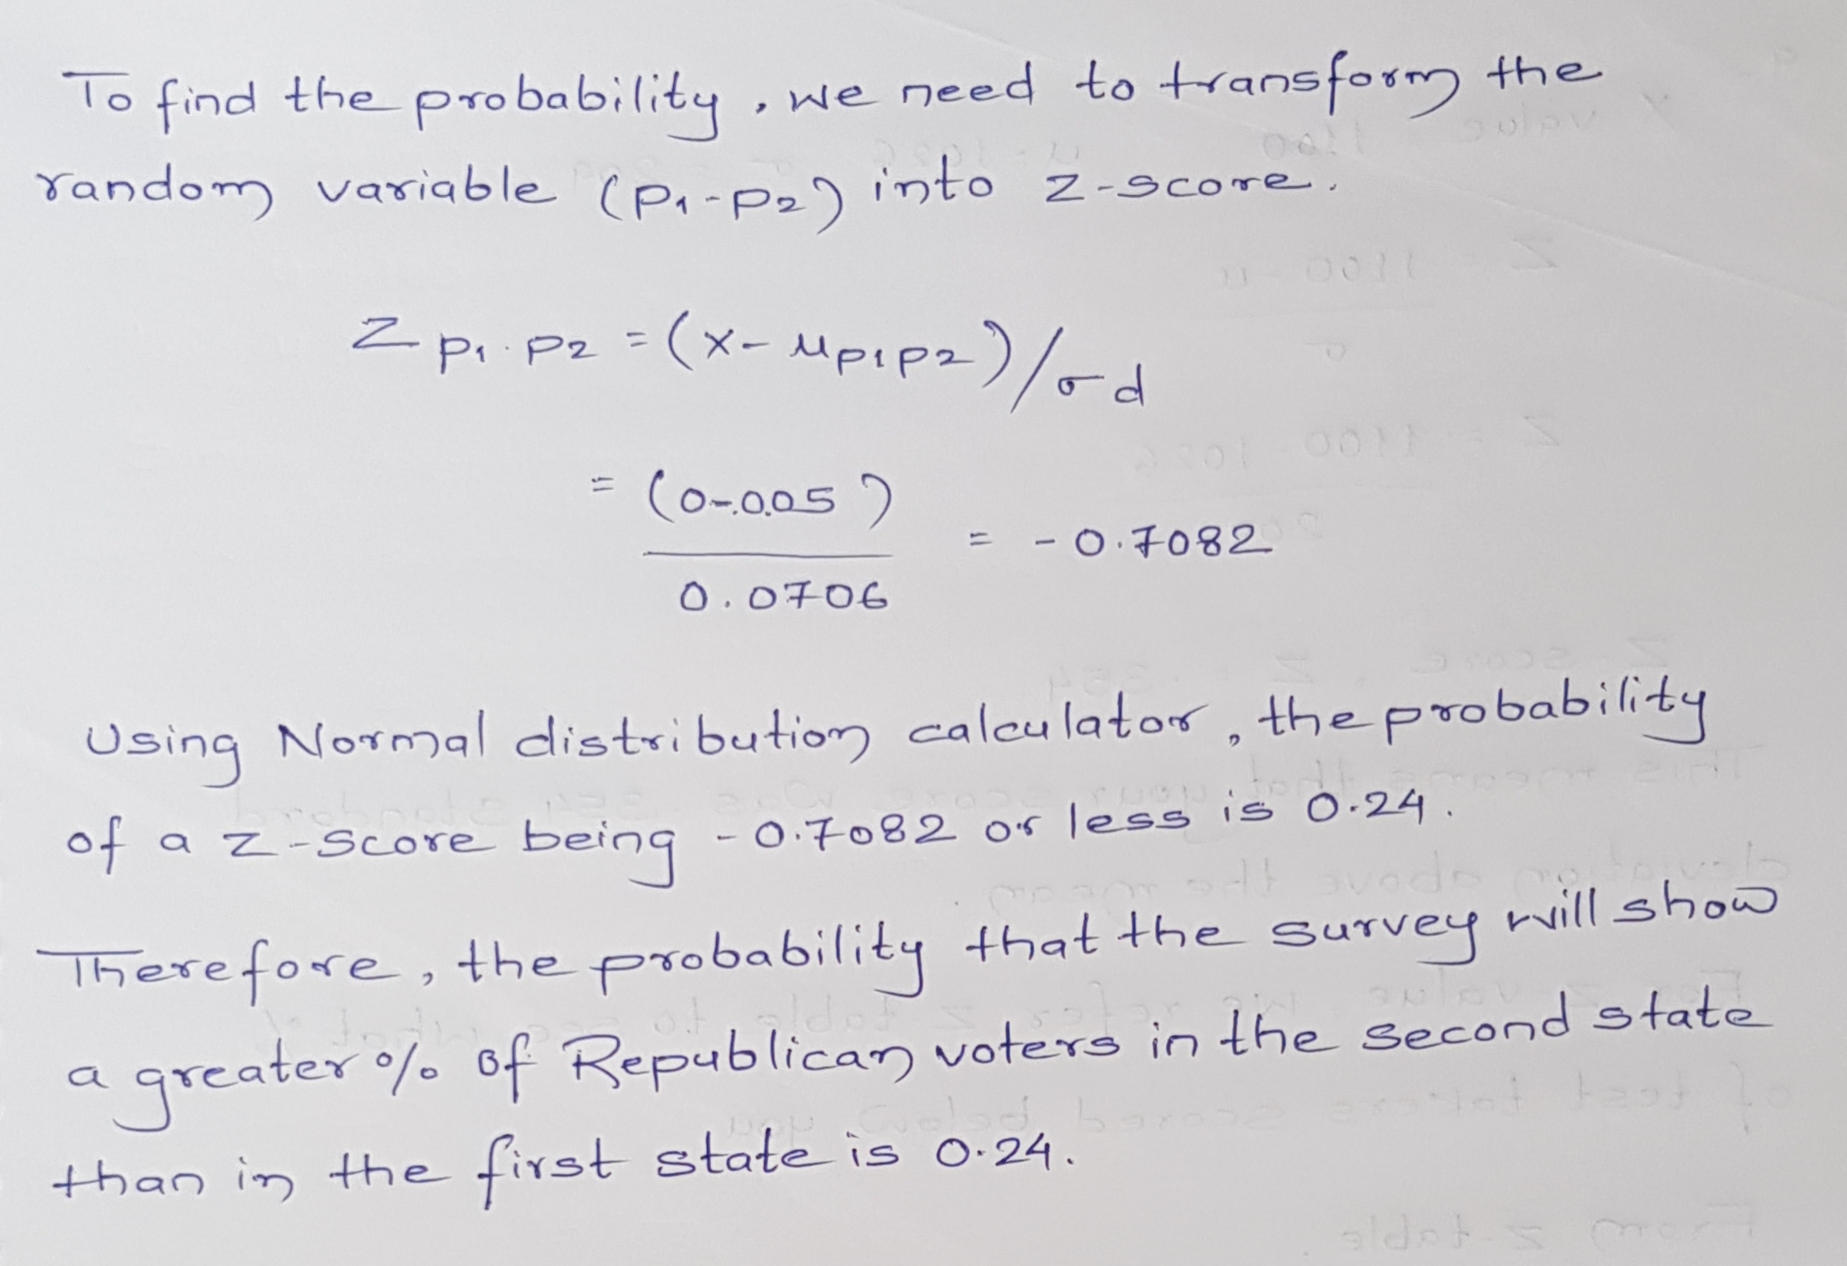 To find the probability, we need to transform the
random variable (P1-P2) into z-score.
Z P1.P2 = (x-μP1P2)/σd
= (0-0.05) / 0.0706 = -0.7082
Using Normal distribution calculator, the probability
of a z-score being -0.7082 or less is 0.24.
Therefore, the probability that the survey will show
a greater % of Republican voters in the second state
than in the first state is 0.24.